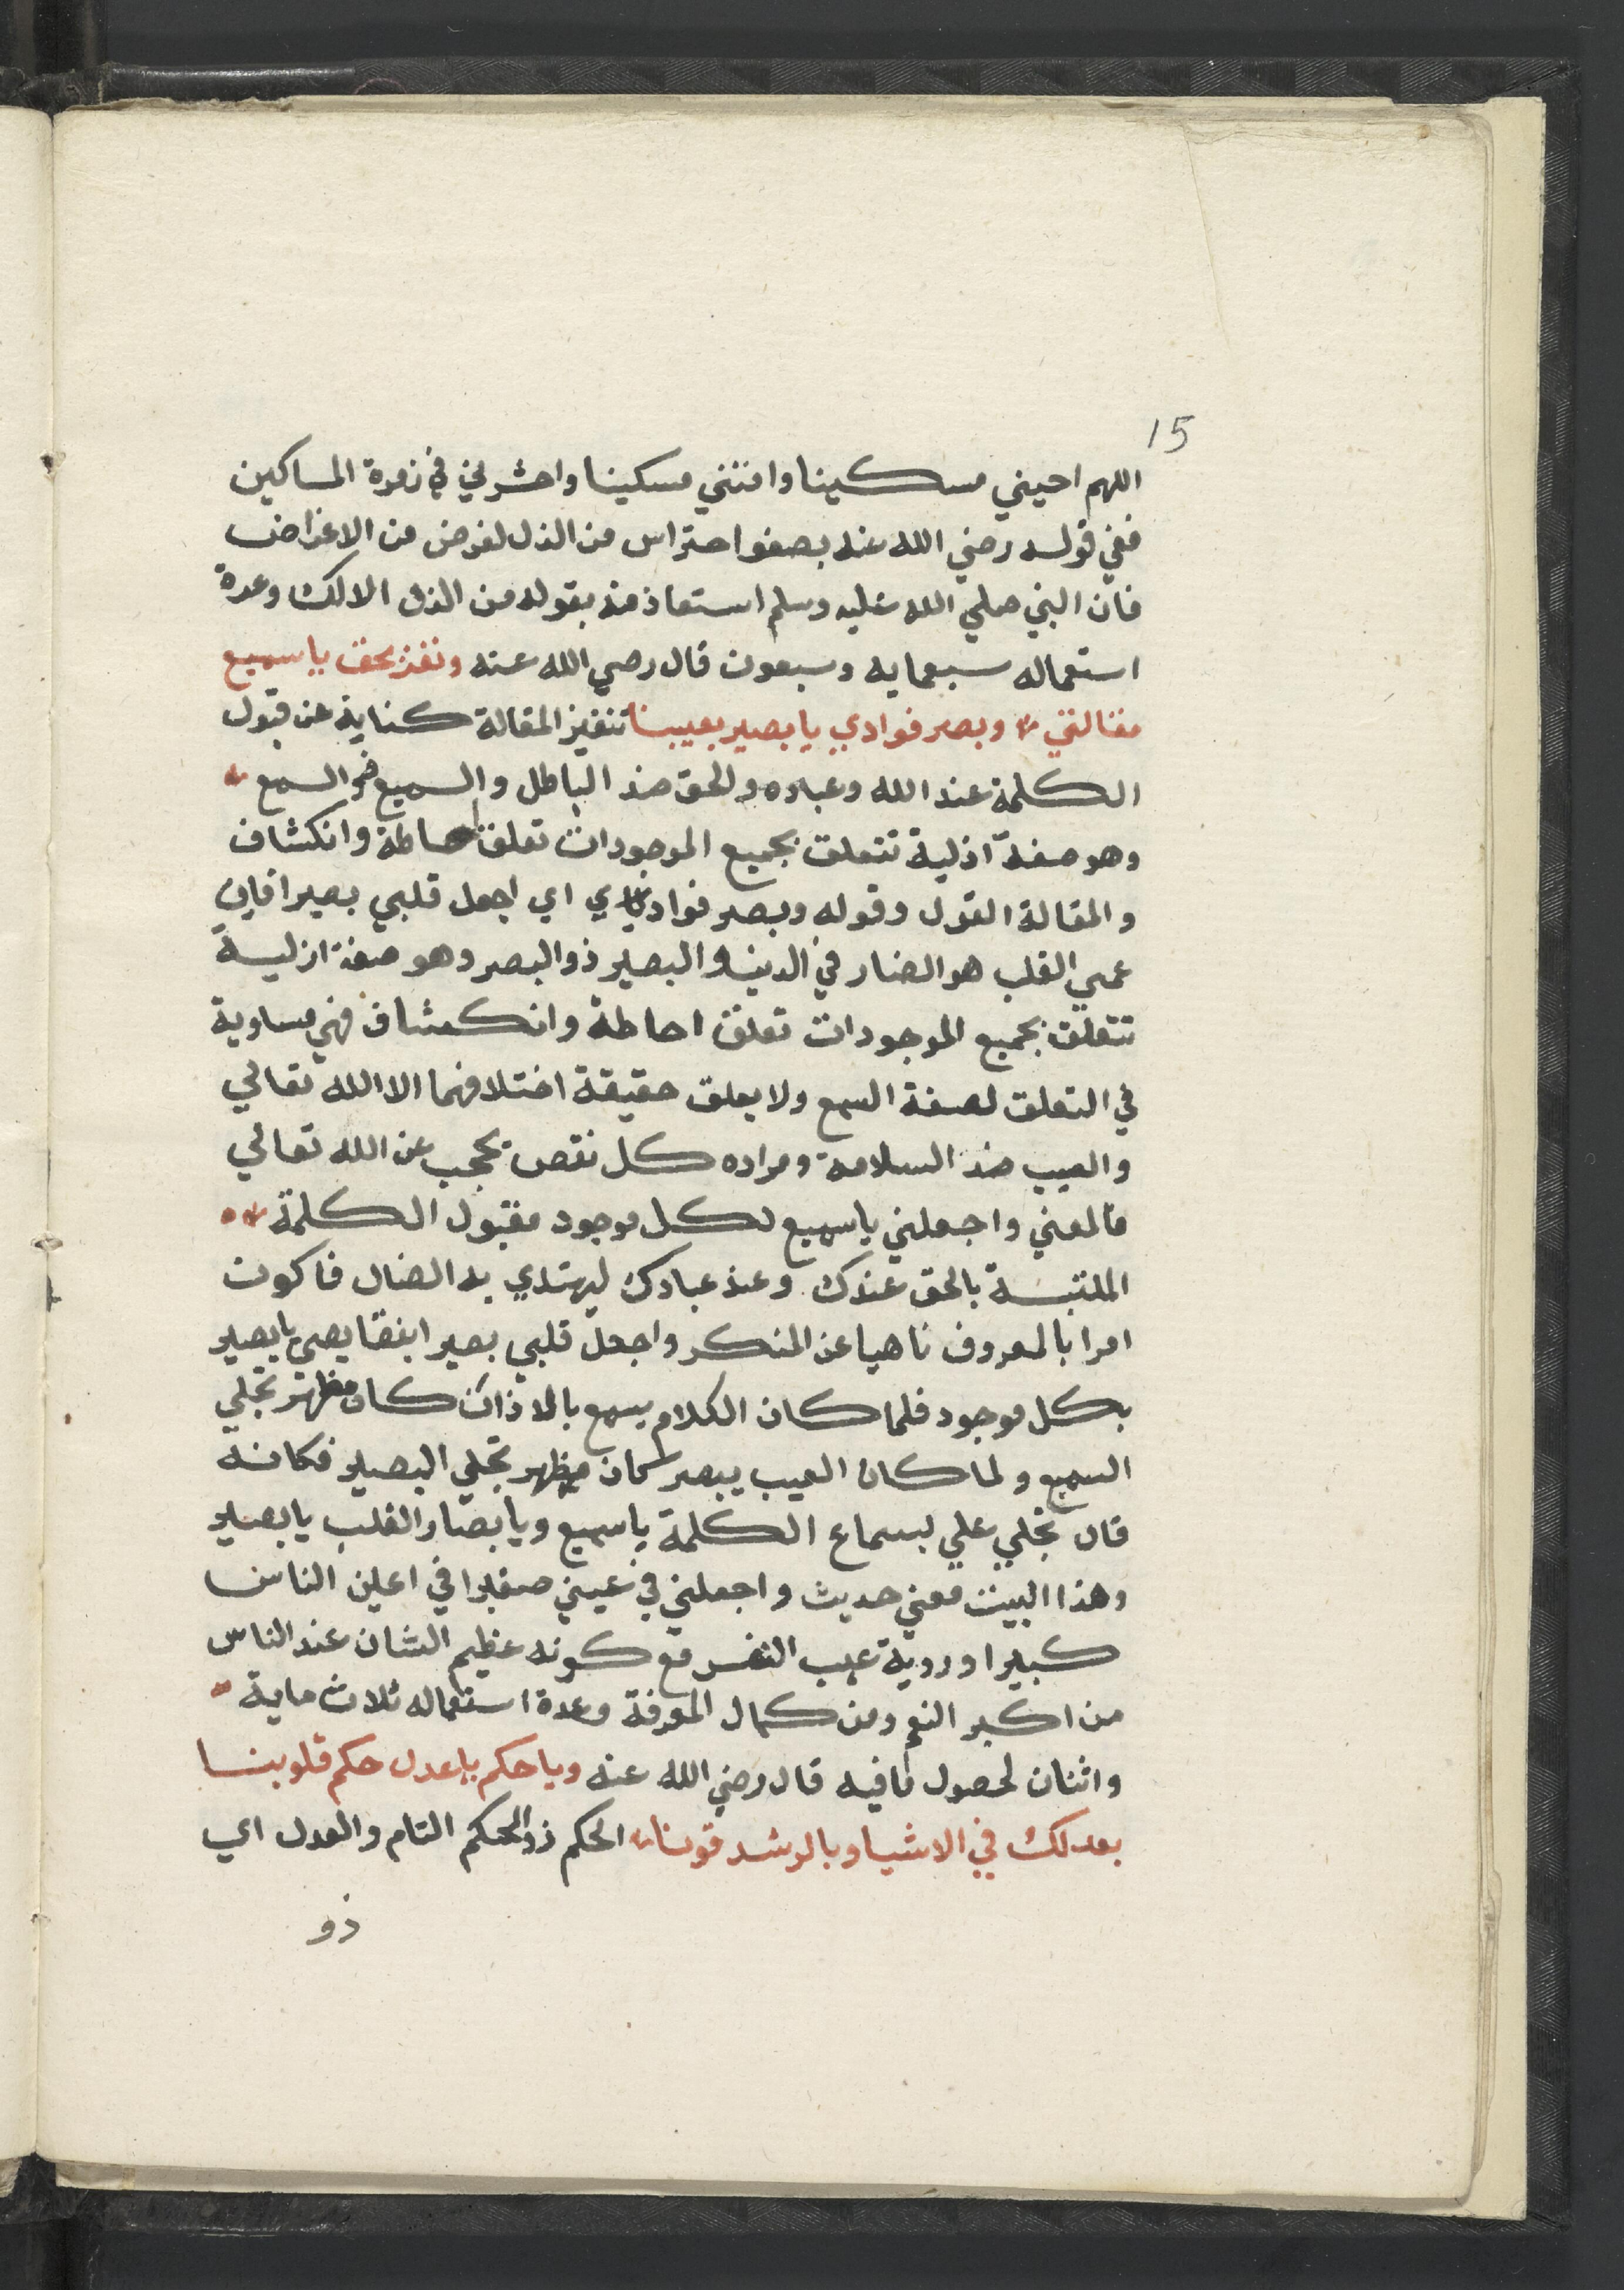 15
اللهم احيني مسكينا وامتني مسكينا واحشرني في زمرة المساكين
ففي قوله رضي الله عنه بصفو احتراس من الذل لغرض من الاغراض
فان النبي صلي الله عليه وسلم استعاذ منه بقوله من الذل الا لك وعدة
استعماله سبعمايه وسبعون قال رضي الله عنه ونفذ بحق يا سميع
مقالتي وبصر فوادي يا بصير بعيبنا تنفيذ المقالة كناية عن قبول
الكلمة عند الله وعباده والحق ضد الباطل والسميع ذو السمع
وهو صفة ازلية تتعلق بجميع الموجودات تعلق احاطة وانكشاف
والمقالة القول وقوله وبصر فوادي اي اجعل قلبي بصيرا فان
عمي القلب هو الضار في الدين والبصير ذو البصر وهو صفة ازلية
تتعلق بجميع الموجودات تعلق احاطة وانكشاف فهي مساوية
في التعلق لصفة السمع ولا يعلق حقيقة اختلافهما الا الله تعالي
والعيب ضد السلامة ومراده كل نقص يحجب عن الله تعالي
فالمعني واجعلني يا سميع لكل موجود مقبول الكلمة
الملتبسة بالحق عندك وعند عبادك ليهتدي به الضال فاكون
امرا بالمعروف ناهيا عن المنكر واجعل قلبي بصيرا بنقايصي يا بصير
بكل موجود فلما كان الكلام يسمع بالاذان كان مظهر تجلي
السميع ولما كان العيب يبصر كان مظهر تجلي البصير فكانه
قال تجلي علي بسماع الكلمة يا سميع ويا بصار القلب يا بصير
وهذا البيت معني حديث واجعلني في عيني صغيرا في اعين الناس
كبيرا وروية عيب النفس مع كونه عظيم الشان عند الناس
من اكبر النعم ومن كمال المعرفة وعدة استعماله ثلاث ماية
واثنان لحصول ما فيه قال رضي الله عنه ويا حكم يا عدل حكم قلوبنا
بعدلك في الاشيا وبالرشد قونا الحكم ذو الحكم التام والعدل اي
ذو